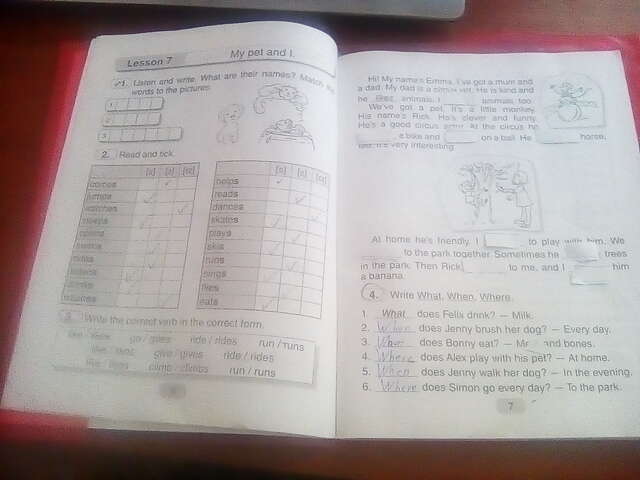 Lesson 7
My pet and I
1. Listen and write. What are their names? Match the
words to the pictures.
1
2
3
2. Read and tick.
[s] [z] [ɪz]
[s] [z] [ɪz]
comes
helps
jumps
reads
watches
dances
skates
plays
skis
rides
runs
sings
drinks
flies
eats
3. Write the correct verb in the correct form.
like / likes go / goes ride / rides run / runs
like / likes give / gives ride / rides
like / likes climb / climbs run / runs
Hi! My name's Emma. I've got a mum and
a dad. My dad is a circus vet. He is kind and
he likes animals. I animals too.
We've got a pet. It's a little monkey.
His name's Rick. He's clever and funny.
He's a good circus actor. At the circus he
a bike and on a ball. He horse,
It's very interesting.
At home he's friendly. I to play with him. We
to the park together. Sometimes he trees
in the park. Then Rick to me, and I him
a banana.
4. Write What, When, Where.
1. What does Felix drink? — Milk.
2. When does Jenny brush her dog? — Every day.
3. What does Bonny eat? — and bones.
4. Where does Alex play with his pet? — At home.
5. When does Jenny walk her dog? — In the evening.
6. Where does Simon go every day? — To the park.
7